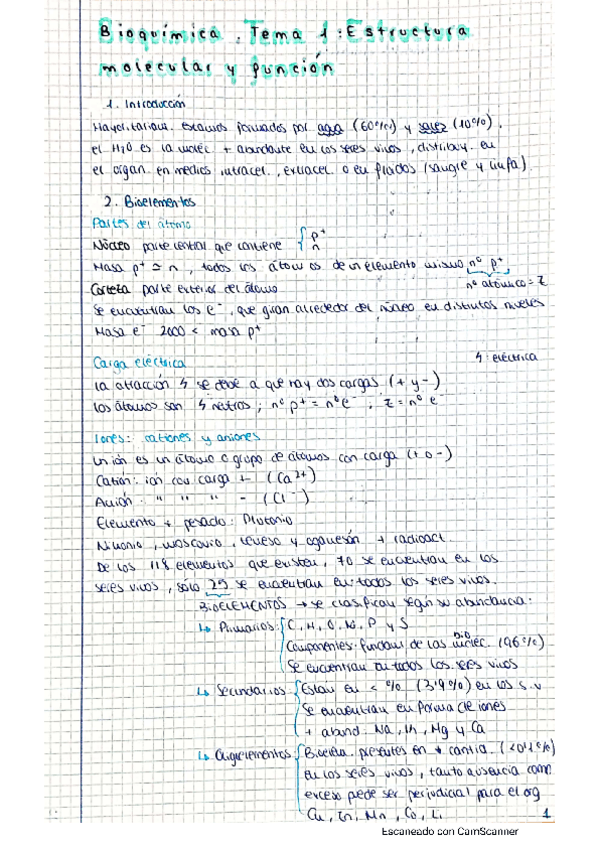 Bioquímica. Tema 1: Estructura
molecular y función
1. Introducción
Mayoritariam. estamos formados por agua (60%) y sales (10%).
el H2O es la moléc. + abundante en los seres vivos, distribuy. en
el organ. en medios intracel., extracel. o en fluidos (sangre y linfa).
2. Bioelementos
Partes del átomo
Núcleo parte central que contiene { p+
n
Masa p+ ≃ n, todos los átomos de un elemento mismo nº p+
nº atómico = Z
Corteza parte exterior del átomo
Se encuentran los e-, que giran alrededor del núcleo en distintos niveles
Masa e- 2000 < masa p+
Carga eléctrica
ϟ: eléctrica
La atracción ϟ se debe a que hay dos cargas (+ y -)
Los átomos son ϟ neutros; nº p+ = nº e-, Z = nº e-
Iones: cationes y aniones
Un ión es un átomo o grupo de átomos con carga (+ o -)
Catión: ión con carga + (Ca2+)
Anión: " " " - (Cl-)
Elemento + pesado: Plutonio
moscovio, y oganesón + radioact.
De los 118 elementos que existen, 70 se encuentran en los
seres vivos, sólo 25 se encuentran en todos los seres vivos.
BIOELEMENTOS → se clasifican según su abundancia:
↳ Primarios: { C, H, O, N, P y S
Componentes fundam. de las bioléc. (96%)
Se encuentran en todos los seres vivos
↳ Secundarios { Están en < % (3'9%) en los s.v
Se encuentran en forma de iones
+ abund. Na, Mg y Ca
↳ Oligoelementos { Bioelem. presentes en cantid. (<0'1%)
en los seres vivos, tanto ausencia como
exceso pede ser perjudicial para el org
Cu, Zn, Mn, Co, Li
1
Escaneado con CamScanner